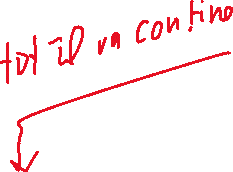 tot îl va contino